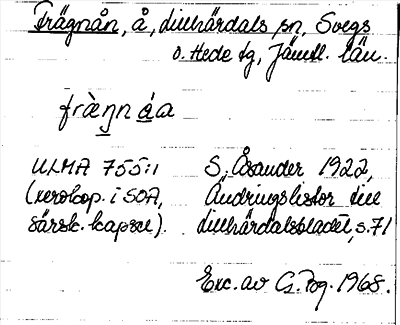 Frägnån, å, Lillhärdals sn, Svegs
o. Hede tg, Jämtl. län.
fràŋnáa
ULMA 755:1 S, Åsander 1922,
(xerokop. i SOA, Ändringslistor till
särsk. kapsel). Lillhärdalsbladet, s. 71
Exc. av G. Pog. 1968.